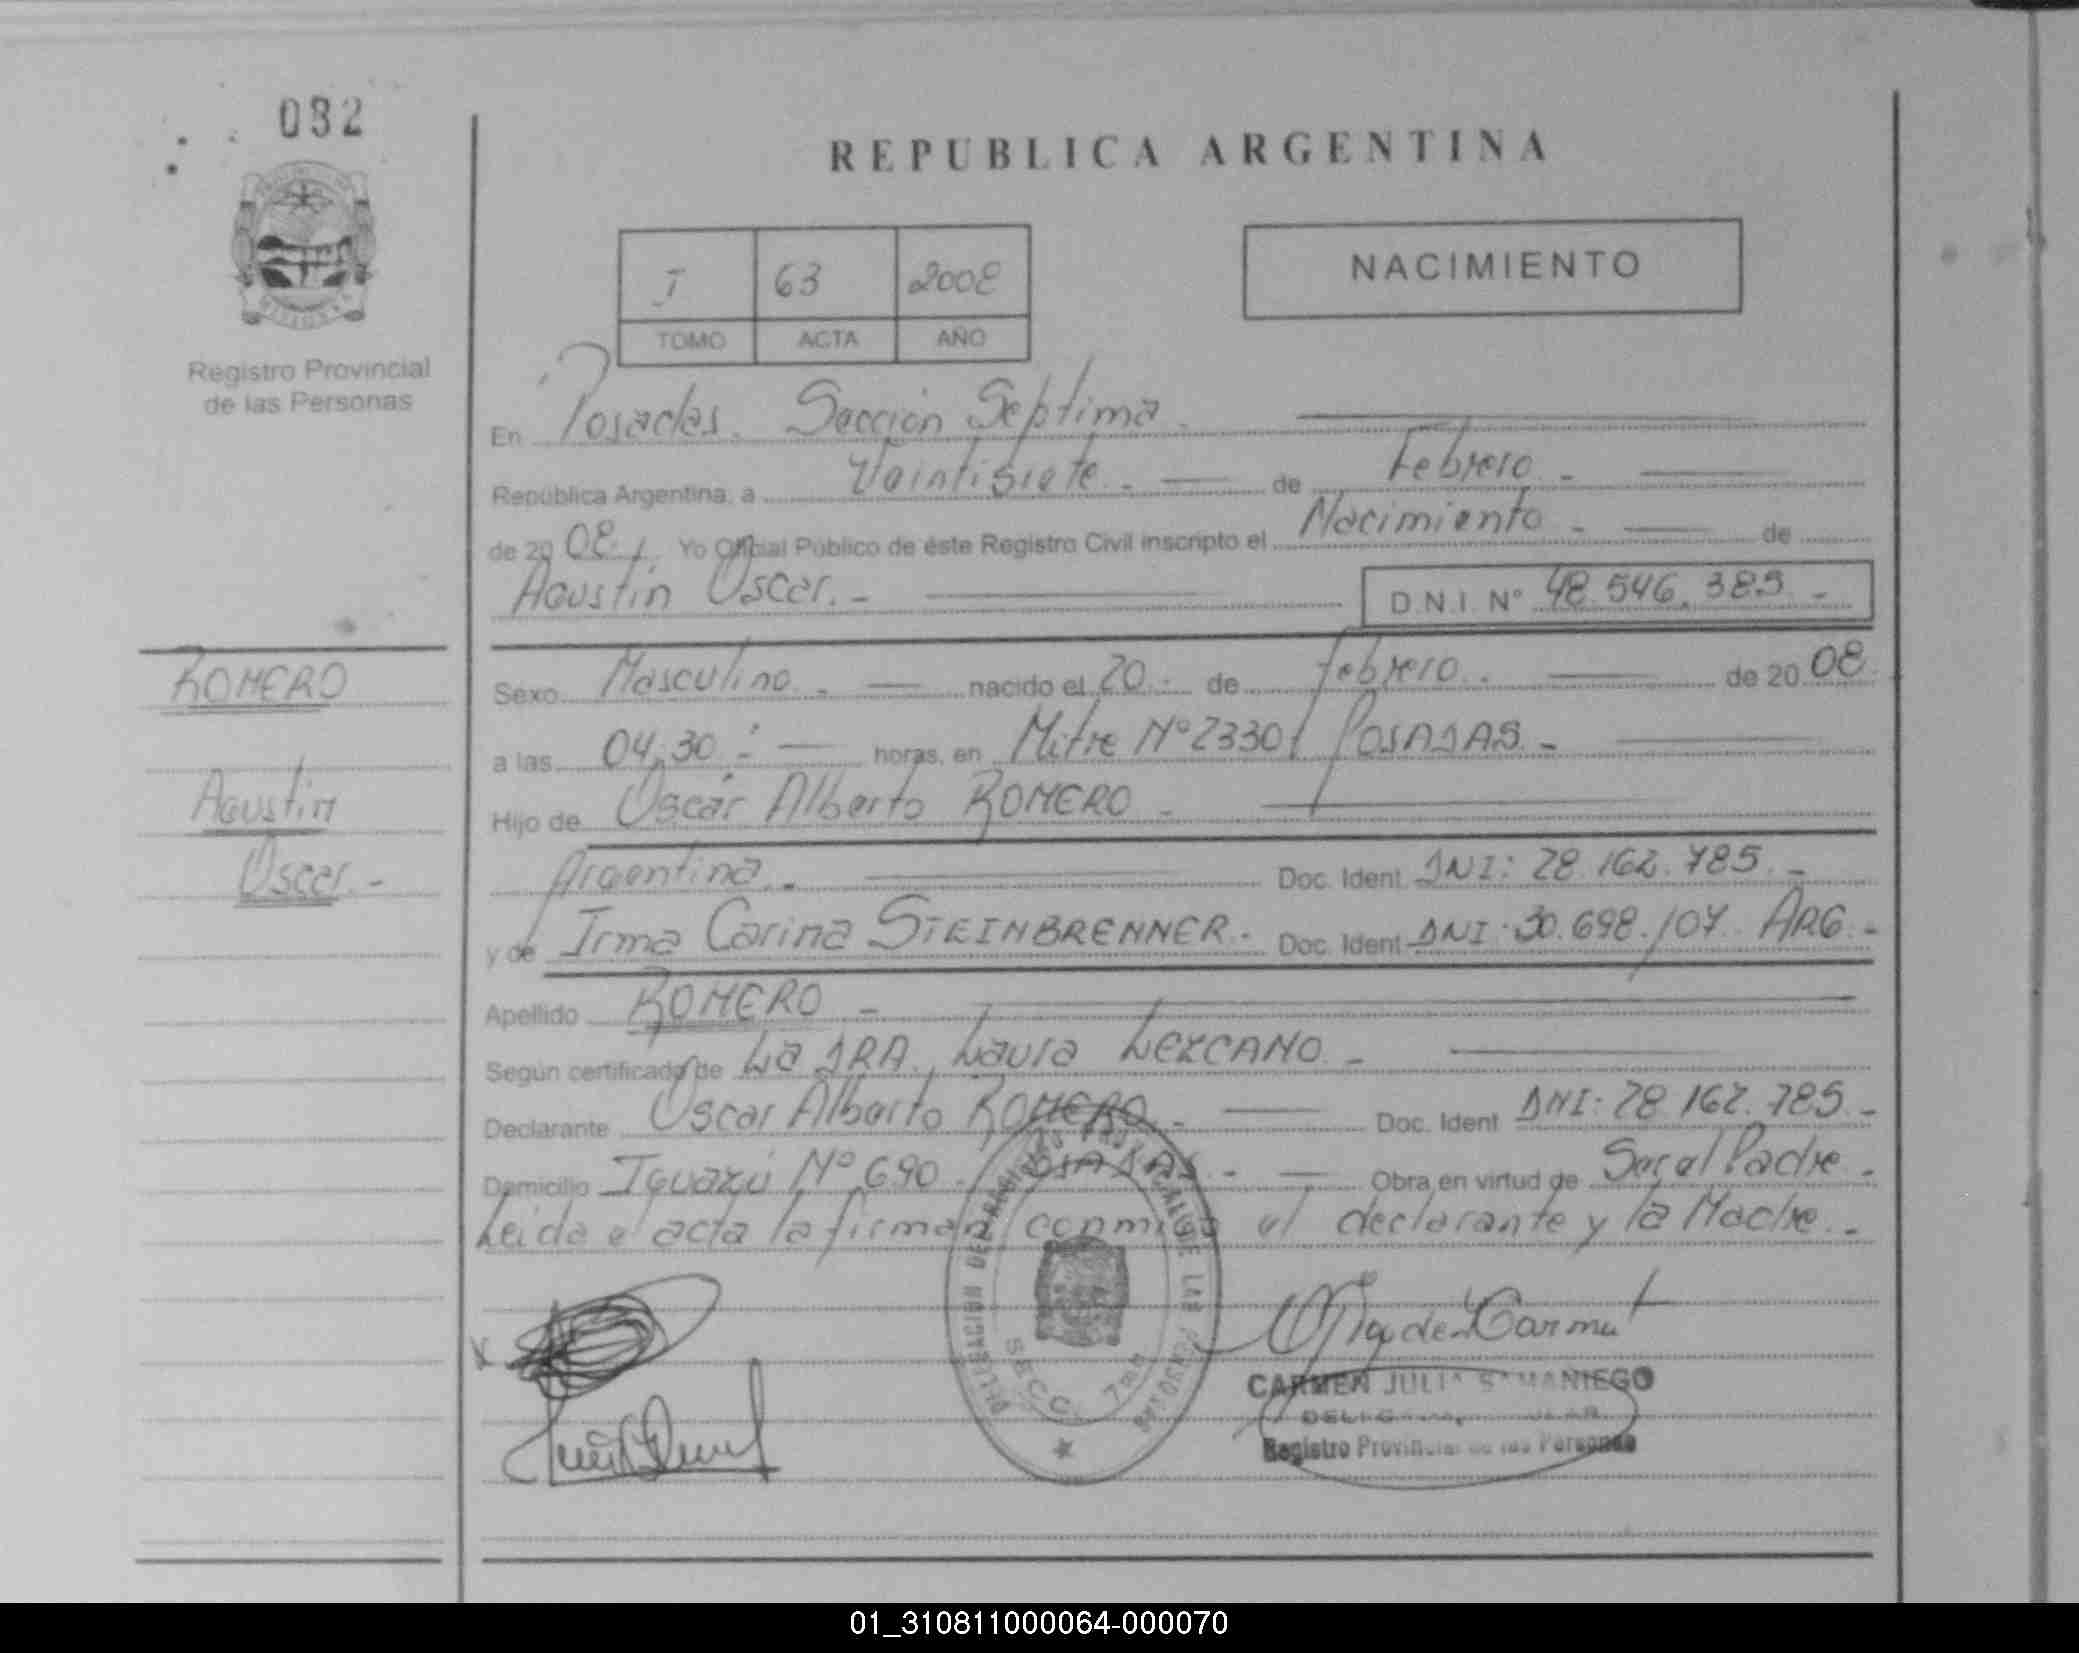 032
REPUBLICA ARGENTINA
I 63 2008
TOMO ACTA AÑO
NACIMIENTO
Registro Provincial
de las Personas
En Posadas. Sección Septima.
República Argentina, a Veintisiete. - de Febrero. -
de 20 08. Yo Oficial Público de éste Registro Civil inscripto el Nacimiento - de
Agustin Oscar. - D.N.I. Nº 48.546.385. -
ROMERO
Agustin
Oscar. -
Sexo Masculino. - nacido el 20. - de febrero. de 20 08.
a las 04,30. - horas, en Mitre Nº 2330/ POSADAS. -
Hijo de Oscar Alberto ROMERO -
Argentina. - Doc. Ident. DNI: 28.162.785. -
y de Irma Carina STEINBRENNER. - Doc. Ident DNI: 30.698.107. ARG. -
Apellido ROMERO -
Según certificado de La DRA. Laura LEZCANO. -
Declarante Oscar Alberto ROMERO. - Doc. Ident DNI: 28.162.785. -
Domicilio Iguazú Nº 690. POSADAS. - Obra en virtud de Ser el Padre.
Leida el acta la firman conmigo el declarante y la Madre. -
DELEGACION DEL REGISTRO PROVINCIAL DE LAS PERSONAS
SECC. 7ma
CARMEN JULIA SAMANIEGO
Registro Provincial de las Personas
01_310811000064-000070